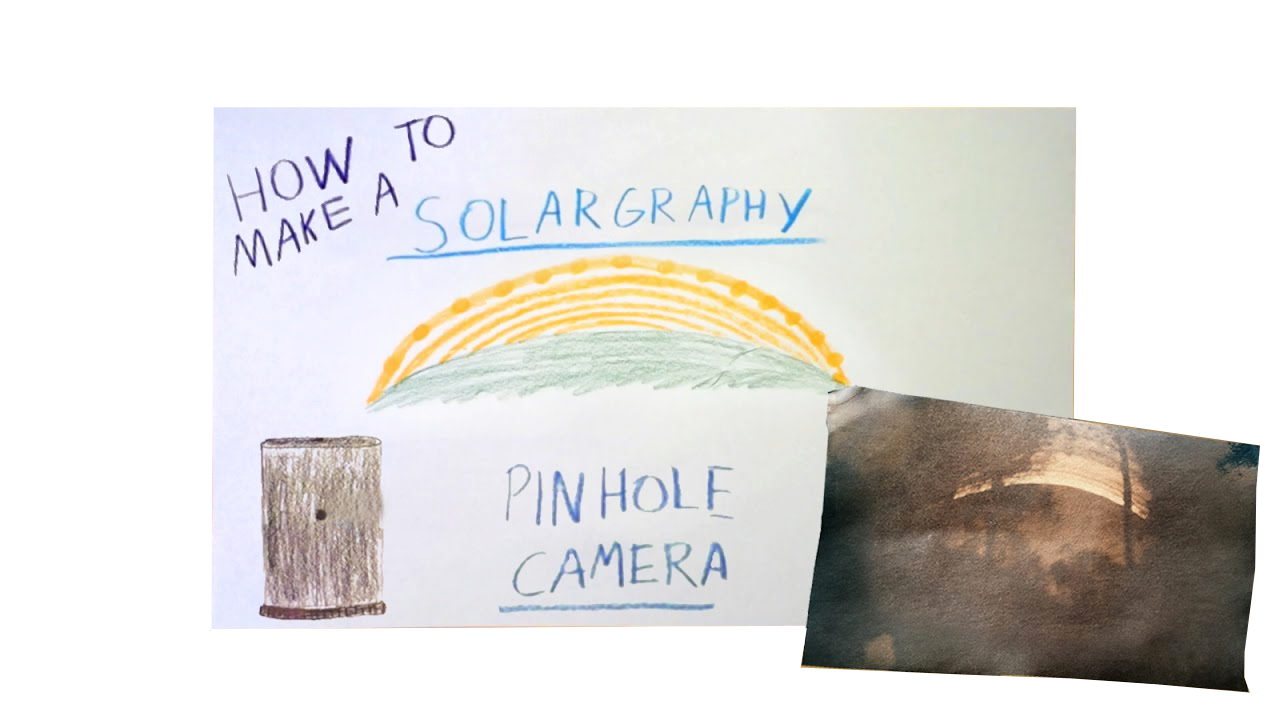 HOW TO
MAKE A
SOLARGRAPHY
PINHOLE
CAMERA